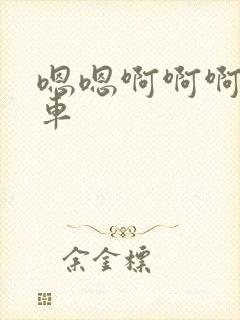 嗯嗯啊啊啊
車
余金標